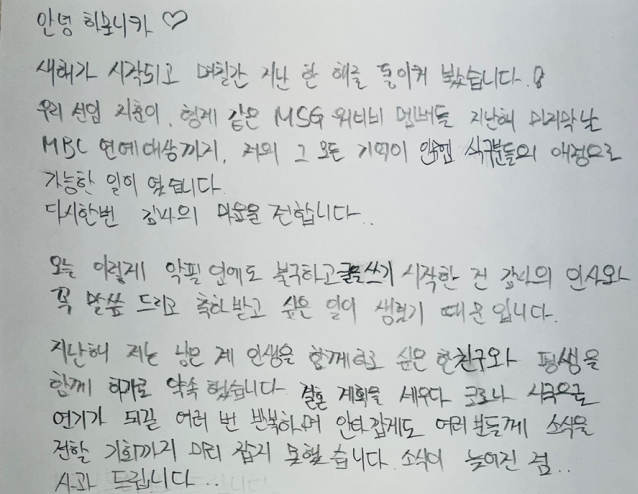 안녕 히포니카 ♡
새해가 시작되고 며칠간 지난 한 해를 돌이켜 봤습니다.
우리 선임 지훈이, 형제 같은 MSG 워너비 멤버들 지난해 마지막날
MBC 연예대상까지, 저의 그 모든 기억이 식구분들의 애정으로
가능한 일이 였습니다.
다시한번 감사의 마음을 전합니다..
오늘 이렇게 악필 임에도 불구하고 글을쓰기 시작한 건 감사의 인사와
꼭 말씀 드리고 축하 받고 싶은 일이 생겼기 때문입니다.
지난해 저는 남은 제 인생을 함께하고 싶은 한친구와 평생을
함께 하기로 약속 했습니다 결혼 계획을 세우다 코로나 시국으로
연기가 되길 여러 번 반복하며 안타깝게도 여러분들께 소식을
전할 기회까지 미리 잡지 못했습니다. 소식이 늦어진 점..
사과 드립니다...